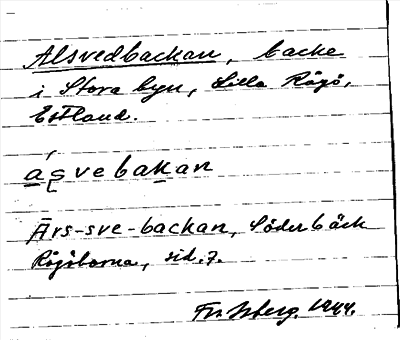 Alsvedbackan, backe
i Stora byn, Lilla Rågö,
Estland.
asvebakan
Ars-sve-backan, Söderbäck
Rågöborna, sid. 7.
1944.